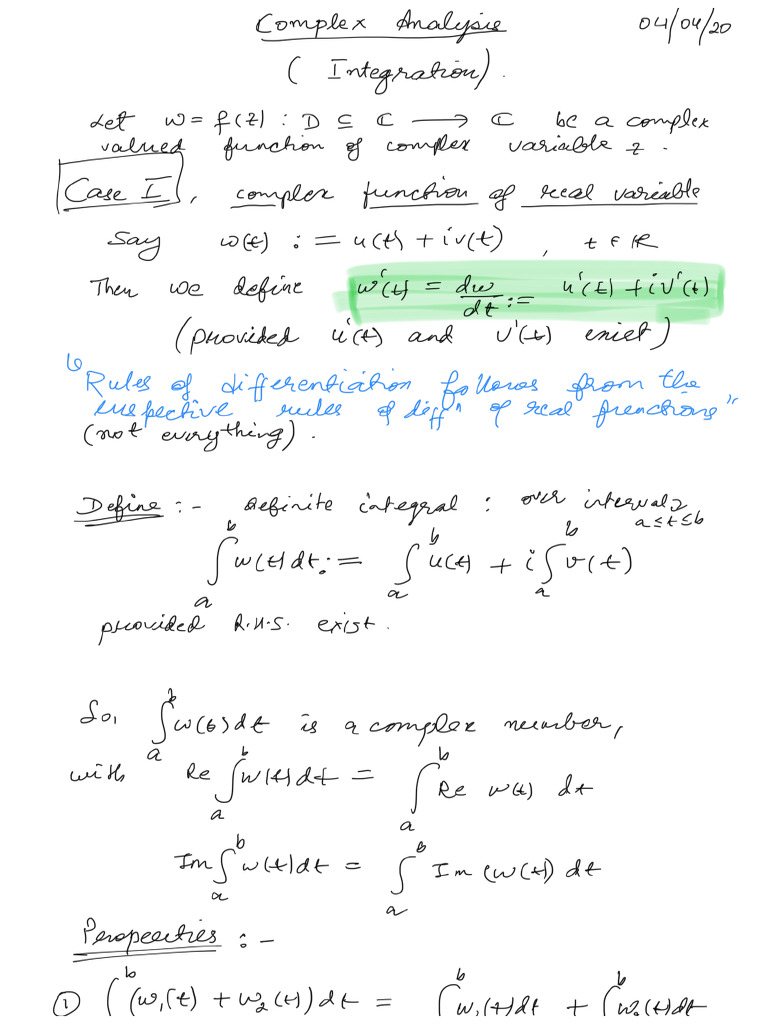 Complex Analysis 04/04/20
(Integration).
Let w = f(z) : D ⊆ ℂ ⟶ ℂ be a complex
valued function of complex variable z.
Case I, complex function of real variable
Say w(t) := u(t) + iv(t), t ∈ ℝ
Then we define w'(t) = dw/dt := u'(t) + iv'(t)
(provided u'(t) and v'(t) exist)
"Rules of differentiation follows from the
respective rules of diffⁿ of real functions"
(not everything).
Define :- Definite integral : over interval a≤t≤b
∫_a^b w(t)dt := ∫_a^b u(t) + i∫_a^b v(t)
provided R.H.S. exist.
So, ∫_a^b w(t)dt is a complex number,
with Re ∫_a^b w(t)dt = ∫_a^b Re w(t) dt
Im ∫_a^b w(t)dt = ∫_a^b Im (w(t)) dt
Properties :-
① ∫^b (w₁(t) + w₂(t))dt = ∫^b w₁(t)dt + ∫^b w₂(t)dt